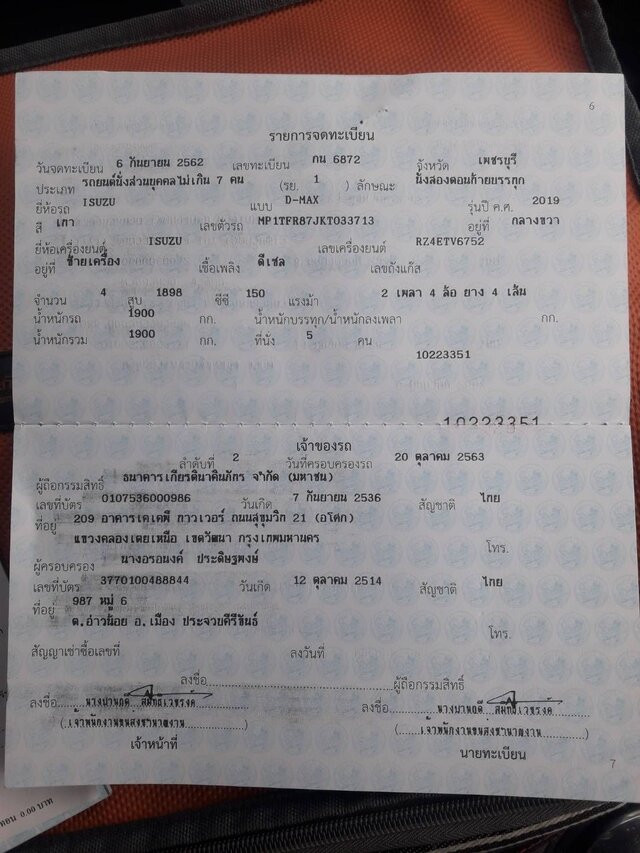 6
รายการจดทะเบียน
วันจดทะเบียน 6 กันยายน 2562 เลขทะเบียน กน 6872 จังหวัด เพชรบุรี
ประเภท รถยนต์นั่งส่วนบุคคลไม่เกิน 7 คน (รย. 1 ) ลักษณะ นั่งสองตอนท้ายบรรทุก
ยี่ห้อรถ ISUZU แบบ D-MAX รุ่นปี ค.ศ. 2019
สี เทา เลขตัวรถ MP1TFR87JKT033713 อยู่ที่ กลางขวา
ยี่ห้อเครื่องยนต์ ISUZU เลขเครื่องยนต์ RZ4ETV6752
อยู่ที่ ซ้ายเครื่อง เชื้อเพลิง ดีเซล เลขถังแก๊ส
จำนวน 4 สูบ 1898 ซีซี 150 แรงม้า 2 เพลา 4 ล้อ ยาง 4 เส้น
น้ำหนักรถ 1900 กก. น้ำหนักบรรทุก/น้ำหนักลงเพลา กก.
น้ำหนักรวม 1900 กก. ที่นั่ง 5 คน
10223351
10223351
เจ้าของรถ
ลำดับที่ 2 วันที่ครอบครองรถ 20 ตุลาคม 2563
ผู้ถือกรรมสิทธิ์ ธนาคารเกียรตินาคินภัทร จำกัด (มหาชน)
เลขที่บัตร 0107536000986 วันเกิด 7 กันยายน 2536 สัญชาติ ไทย
ที่อยู่ 209 อาคารเคเคพี ทาวเวอร์ ถนนสุขุมวิท 21 (อโศก)
แขวงคลองเตยเหนือ เขตวัฒนา กรุงเทพมหานคร โทร.
ผู้ครอบครอง นางอรอนงค์ ประดิษฐพงษ์
เลขที่บัตร 3770100488844 วันเกิด 12 ตุลาคม 2514 สัญชาติ ไทย
ที่อยู่ 987 หมู่ 6
ต.อ่าวน้อย อ.เมือง ประจวบคีรีขันธ์ โทร.
สัญญาเช่าซื้อเลขที่ ลงวันที่
ลงชื่อ ผู้ถือกรรมสิทธิ์
ลงชื่อ ลงชื่อ
(เจ้าพนักงานขนส่งชำนาญงาน) (เจ้าพนักงานขนส่งชำนาญงาน)
เจ้าหน้าที่ นายทะเบียน
7
0.00 บาท